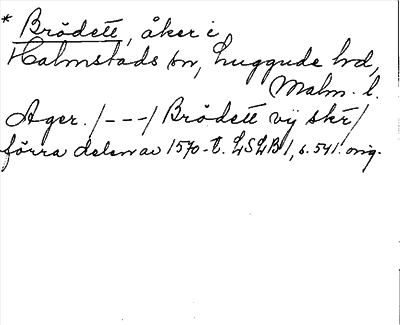 * Brödett, åker i
Halmstads sn, Luggude hd,
Malm. l.
Ager. /---/ Brödett vij skr /
förra delen av 1570-t. LSLB 1, s. 541. orig.